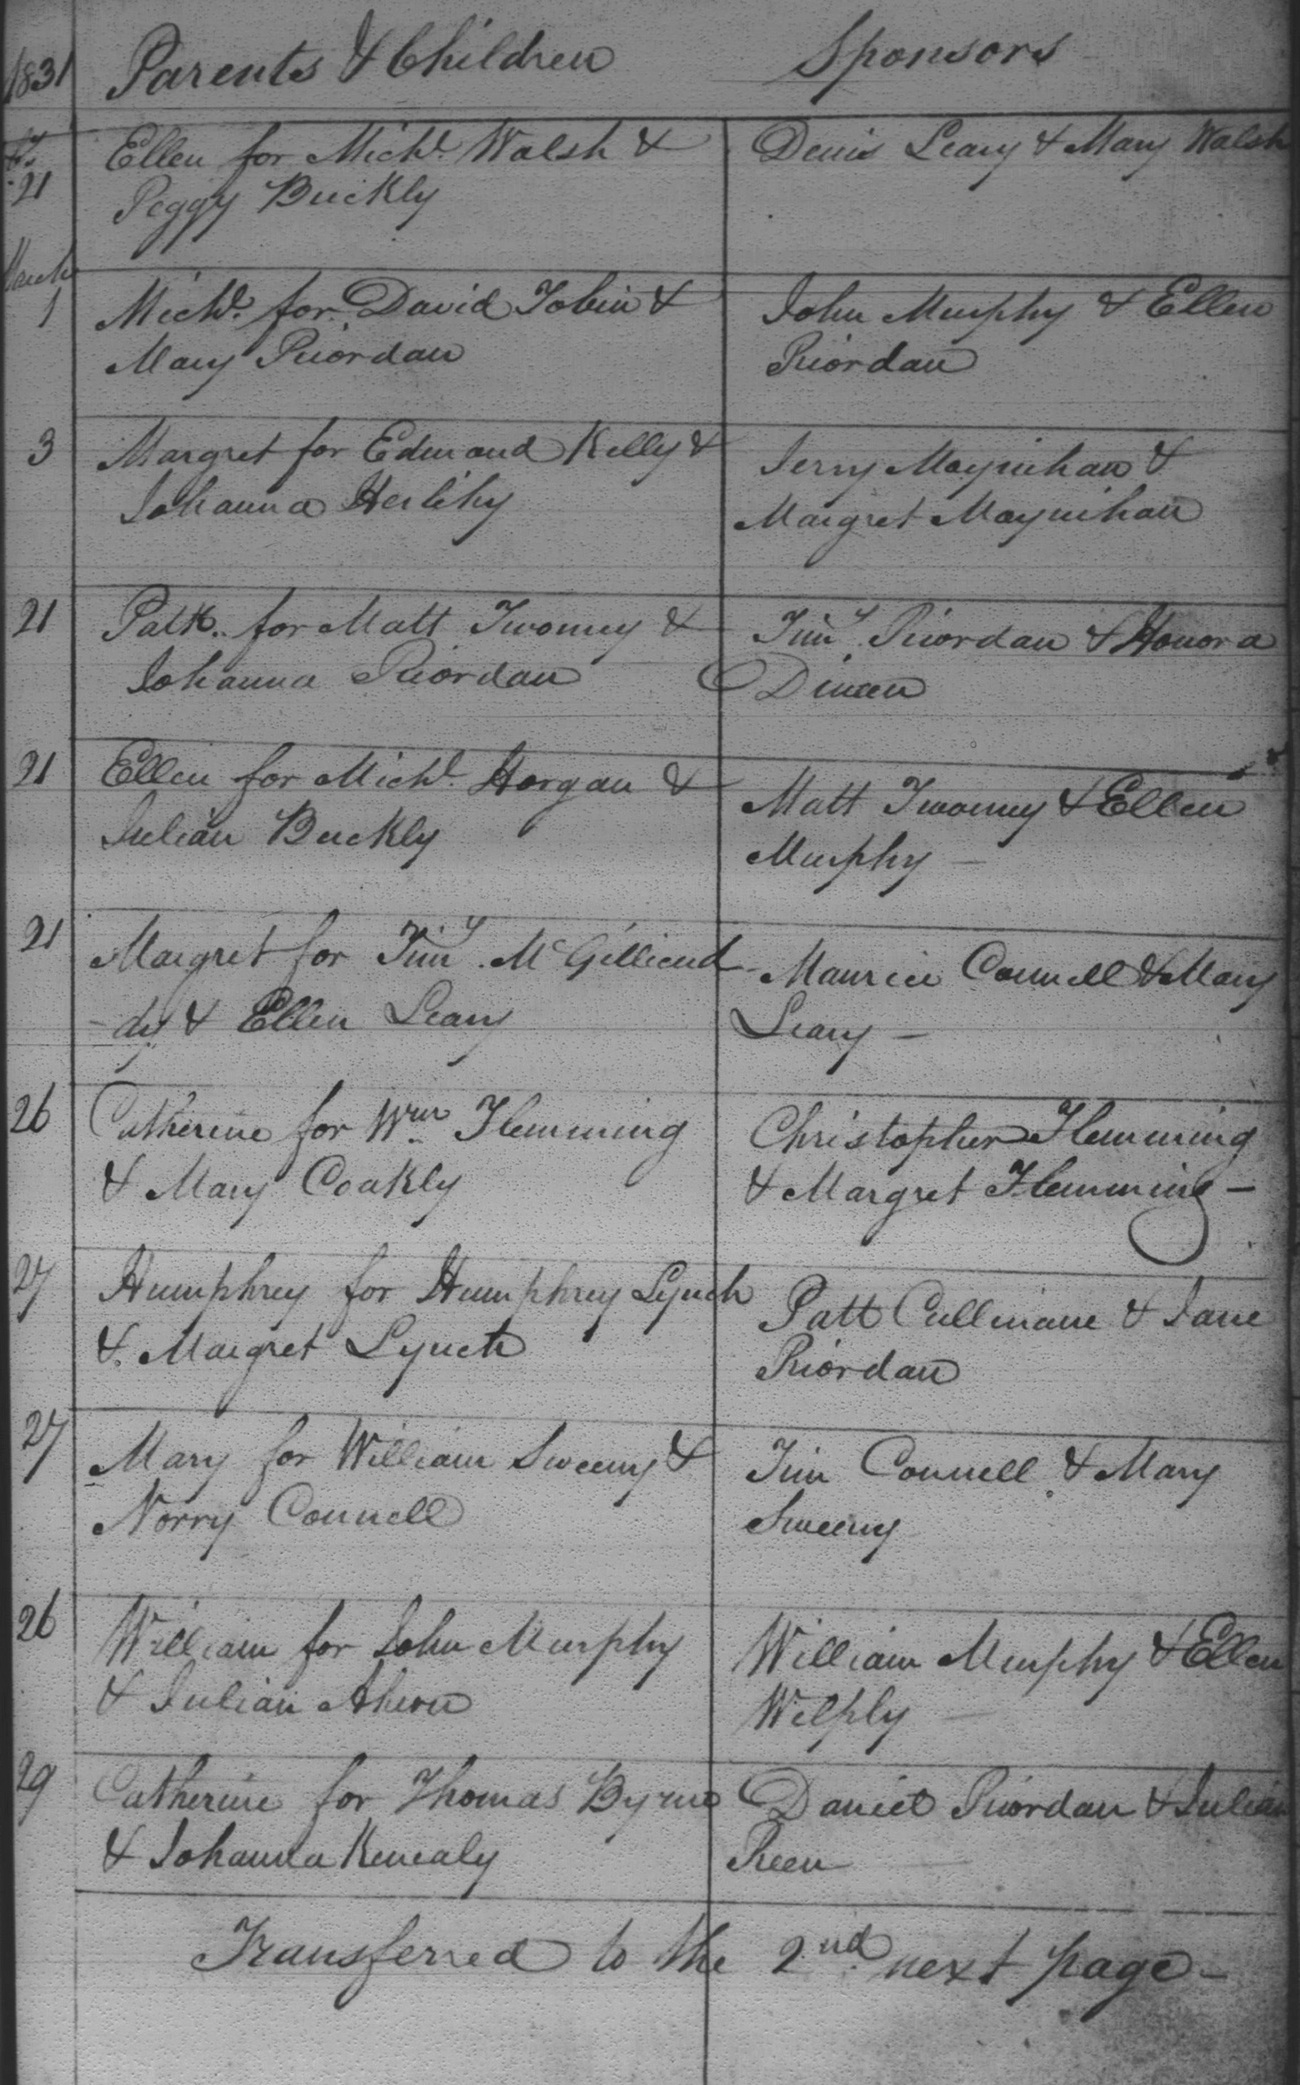 1831 Parents & Children Sponsors
21 Ellen for Michl. Walsh & Denis Leary & Mary Walsh
Peggy Buckly
March
1 Michl. for David Tobin & John Murphy & Ellen
Mary Riordan Riordan
3 Margret for Edmond Kelly & Jerry Moynihan &
Johanna Herlihy Margret Moynihan
21 Patk. for Matt Twomey & Timy. Riordan & Honora
Johanna Riordan Dineen
21 Ellen for Michl. Horgan & Matt Twomey & Ellen
Julian Buckly Murphy
21 Margret for Timy. McGillicud- Maurice Connell & Mary
-dy & Ellen Leary Leary
26 Catherine for Wm. Flemming Christopher Flemming
& Mary Coakly & Margret Flemming
27 Humphrey for Humphrey Lynch Patt Cullinane & Jane
& Margret Lynch Riordan
27 Mary for William Sweeny & Tim Connell & Mary
Norry Connell Sweeny
26 William for John Murphy William Murphy & Ellen
& Julian Ahern Wilply
29 Catherine for Thomas Byrne Daniel Riordan & Julian
& Johanna Kenealy Reen
Transferred to the 2nd next page